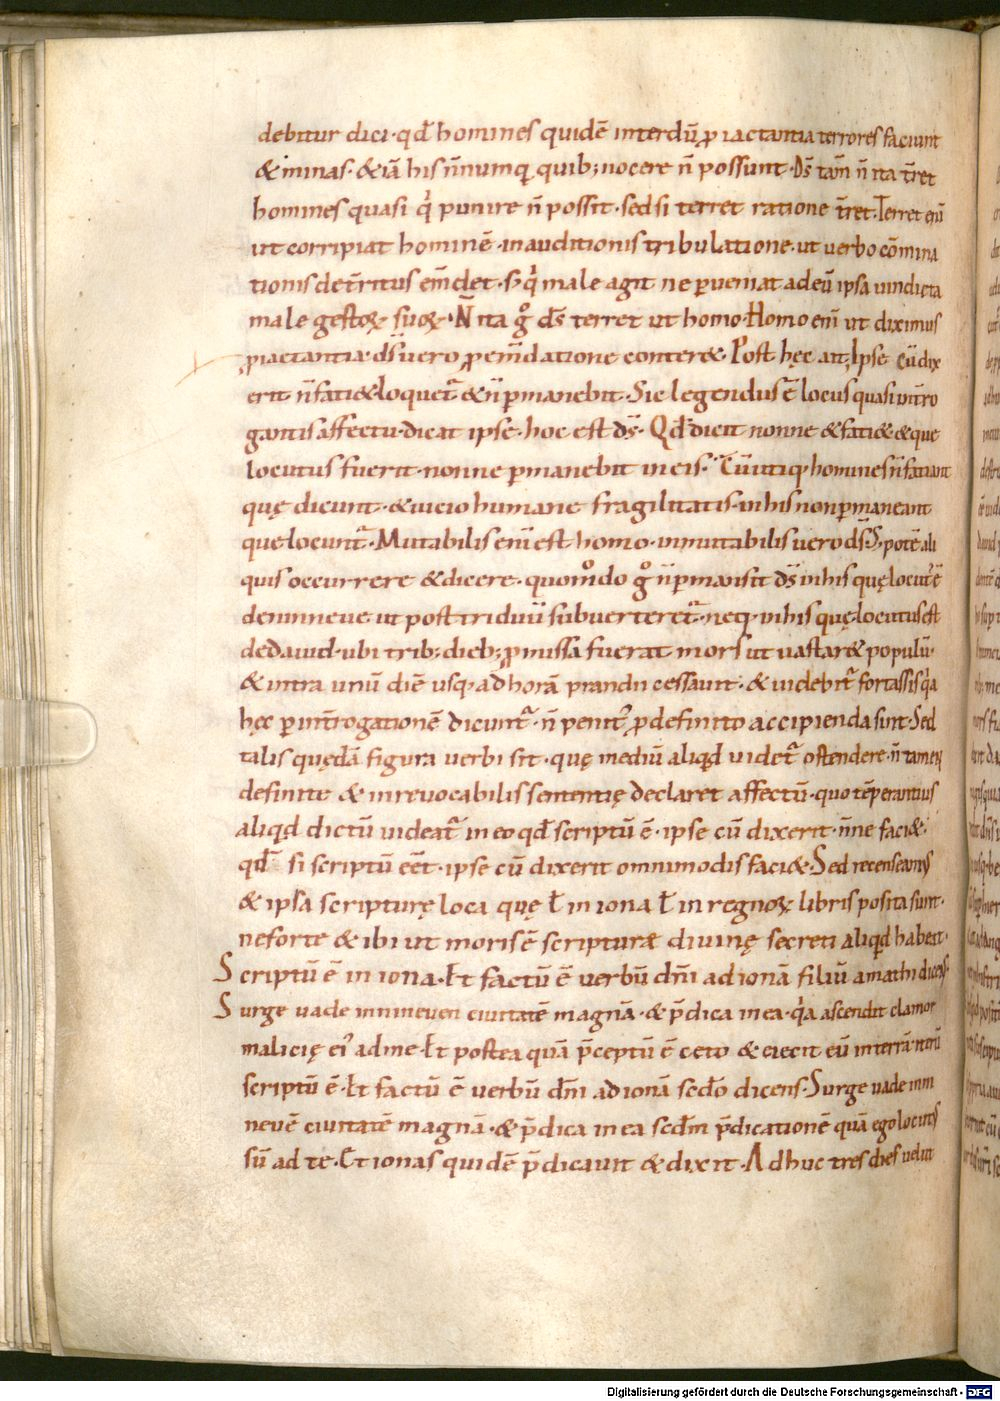 debitur dici · qđ homines quidē interdū ꝓ iactantia terrores faciunt
& minas · & iā his n̄numq quib; nocere n̄ possunt · D̄s tam̄ n̄ ita t̄ret
homines quasi q punire n̄ possit · sed si terret ratione t̄ret · Terret eni̅
ut corripiat hominē · in auditionis tribulatione · ut verbo cōmina
tionis det̄ritus em̄det · s; q male agit ne ꝑveniat ad eū ipsa vindicta
male gestoꝝ suoꝝ · N̄ ita gͦ d̄s terret ut homo · Homo eni̅ ut diximus
ꝓ iactantia · d̄s vero ꝓ em̄datione conter& · Post hęc ait · Ipse cū dix
erit n̄ fati& loquet̄ & n̄ ꝑmanebit · Sic legendus ē locus quasi int̄ro
gantis affectu · dicat ipse · hoc est d̄s · Qđ dicit nonne & fati& · & que
locutus fuerit · nonne ꝑmanebit in eis · Cū utiq · homines n̄ fatiant
quę dicunt · & vicio humane fragilitatis · in his non ꝑmaneant
que locunt̄ · Mutabilis eni̅ est homo · inmutabilis vero d̄s · S; potē ali
quis occurrere & dicere · quomͦdo gͦ n̄ ꝑmansit d̄s in his quę locut̄ ē
de nineve · ut post triduū subverteret̄ · neq · in his quę locutus est
de david · ubi trib; dieb; ꝓmissa fuerat mors ut vastar& populū ·
& intra unū diē usq · ad horā prandii cessavit · & videbit̄ fortassis qa
hęc ꝑ int̄rogationē dicunt̄ · n̄ penit̄ ꝓ definito accipienda sint · Sed
talis quędā figura verbi sit · quę mediū aliqđ videt̄ ostendere · n̄ tamen
definite & inrevocabilis sententię declaret affectū · quo tēperantius
aliqđ dictū videat̄ in eo qđ scriptū ē · ipse cū dixerit · n̄ne faci& ·
qđ si scriptū eēt · ipse cū dixerit omnimodis faci& · Sed recenseamus
& ipsa scripturę loca quę ł in iona ł in regnoꝝ libris posita sunt ·
ne forte & ibi ut moris ē scripturæ divinę secreti aliqđ habeat ·
Scriptū ē in iona · Et factū ē verbū dn̄i ad ionā filiū amathi dicens ·
Surge vade in nineven civitatē magnā · & p̄dica in ea · qa ascendit clamor
malicię ei' ad me · Et postea quā p̄ceptū ē ceto & eiecit eū in terrā · iterū
scriptū ē · Et factū ē verbū dn̄i ad ionā sedͦo dicens · Surge vade in ni
nevē civitatē magnā · & p̄dica in ea secd̄m p̄dicationē quā ego locutus
sū ad te · Et ionas quidē p̄dicavit & dixit · Adhuc tres dies velut
Digitalisierung gefördert durch die Deutsche Forschungsgemeinschaft - DFG